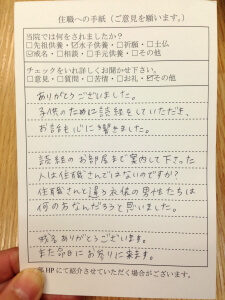 住職への手紙（ご意見を願います。）
当院では何をされましたか?
□先祖供養・☑水子供養・□祈願・□士仏
☑戒名・□相談・□手元供養・□その他
チェックをいれ詳しくお聞かせ下さい。
□意見・□質問・□苦情・□お礼・☑その他
ありがとうございました。
子供のために読経をしていただき、
お話も心に響きました。
読経のお部屋まで案内して下さった
人は住職さんではないのですか?
住職さんと違う衣装の男性たちは
何の方なんだろうと思いました。
戒名ありがとうございます。
また命日にお参りに来ます。
HPにて紹介させていただく場合がございます。